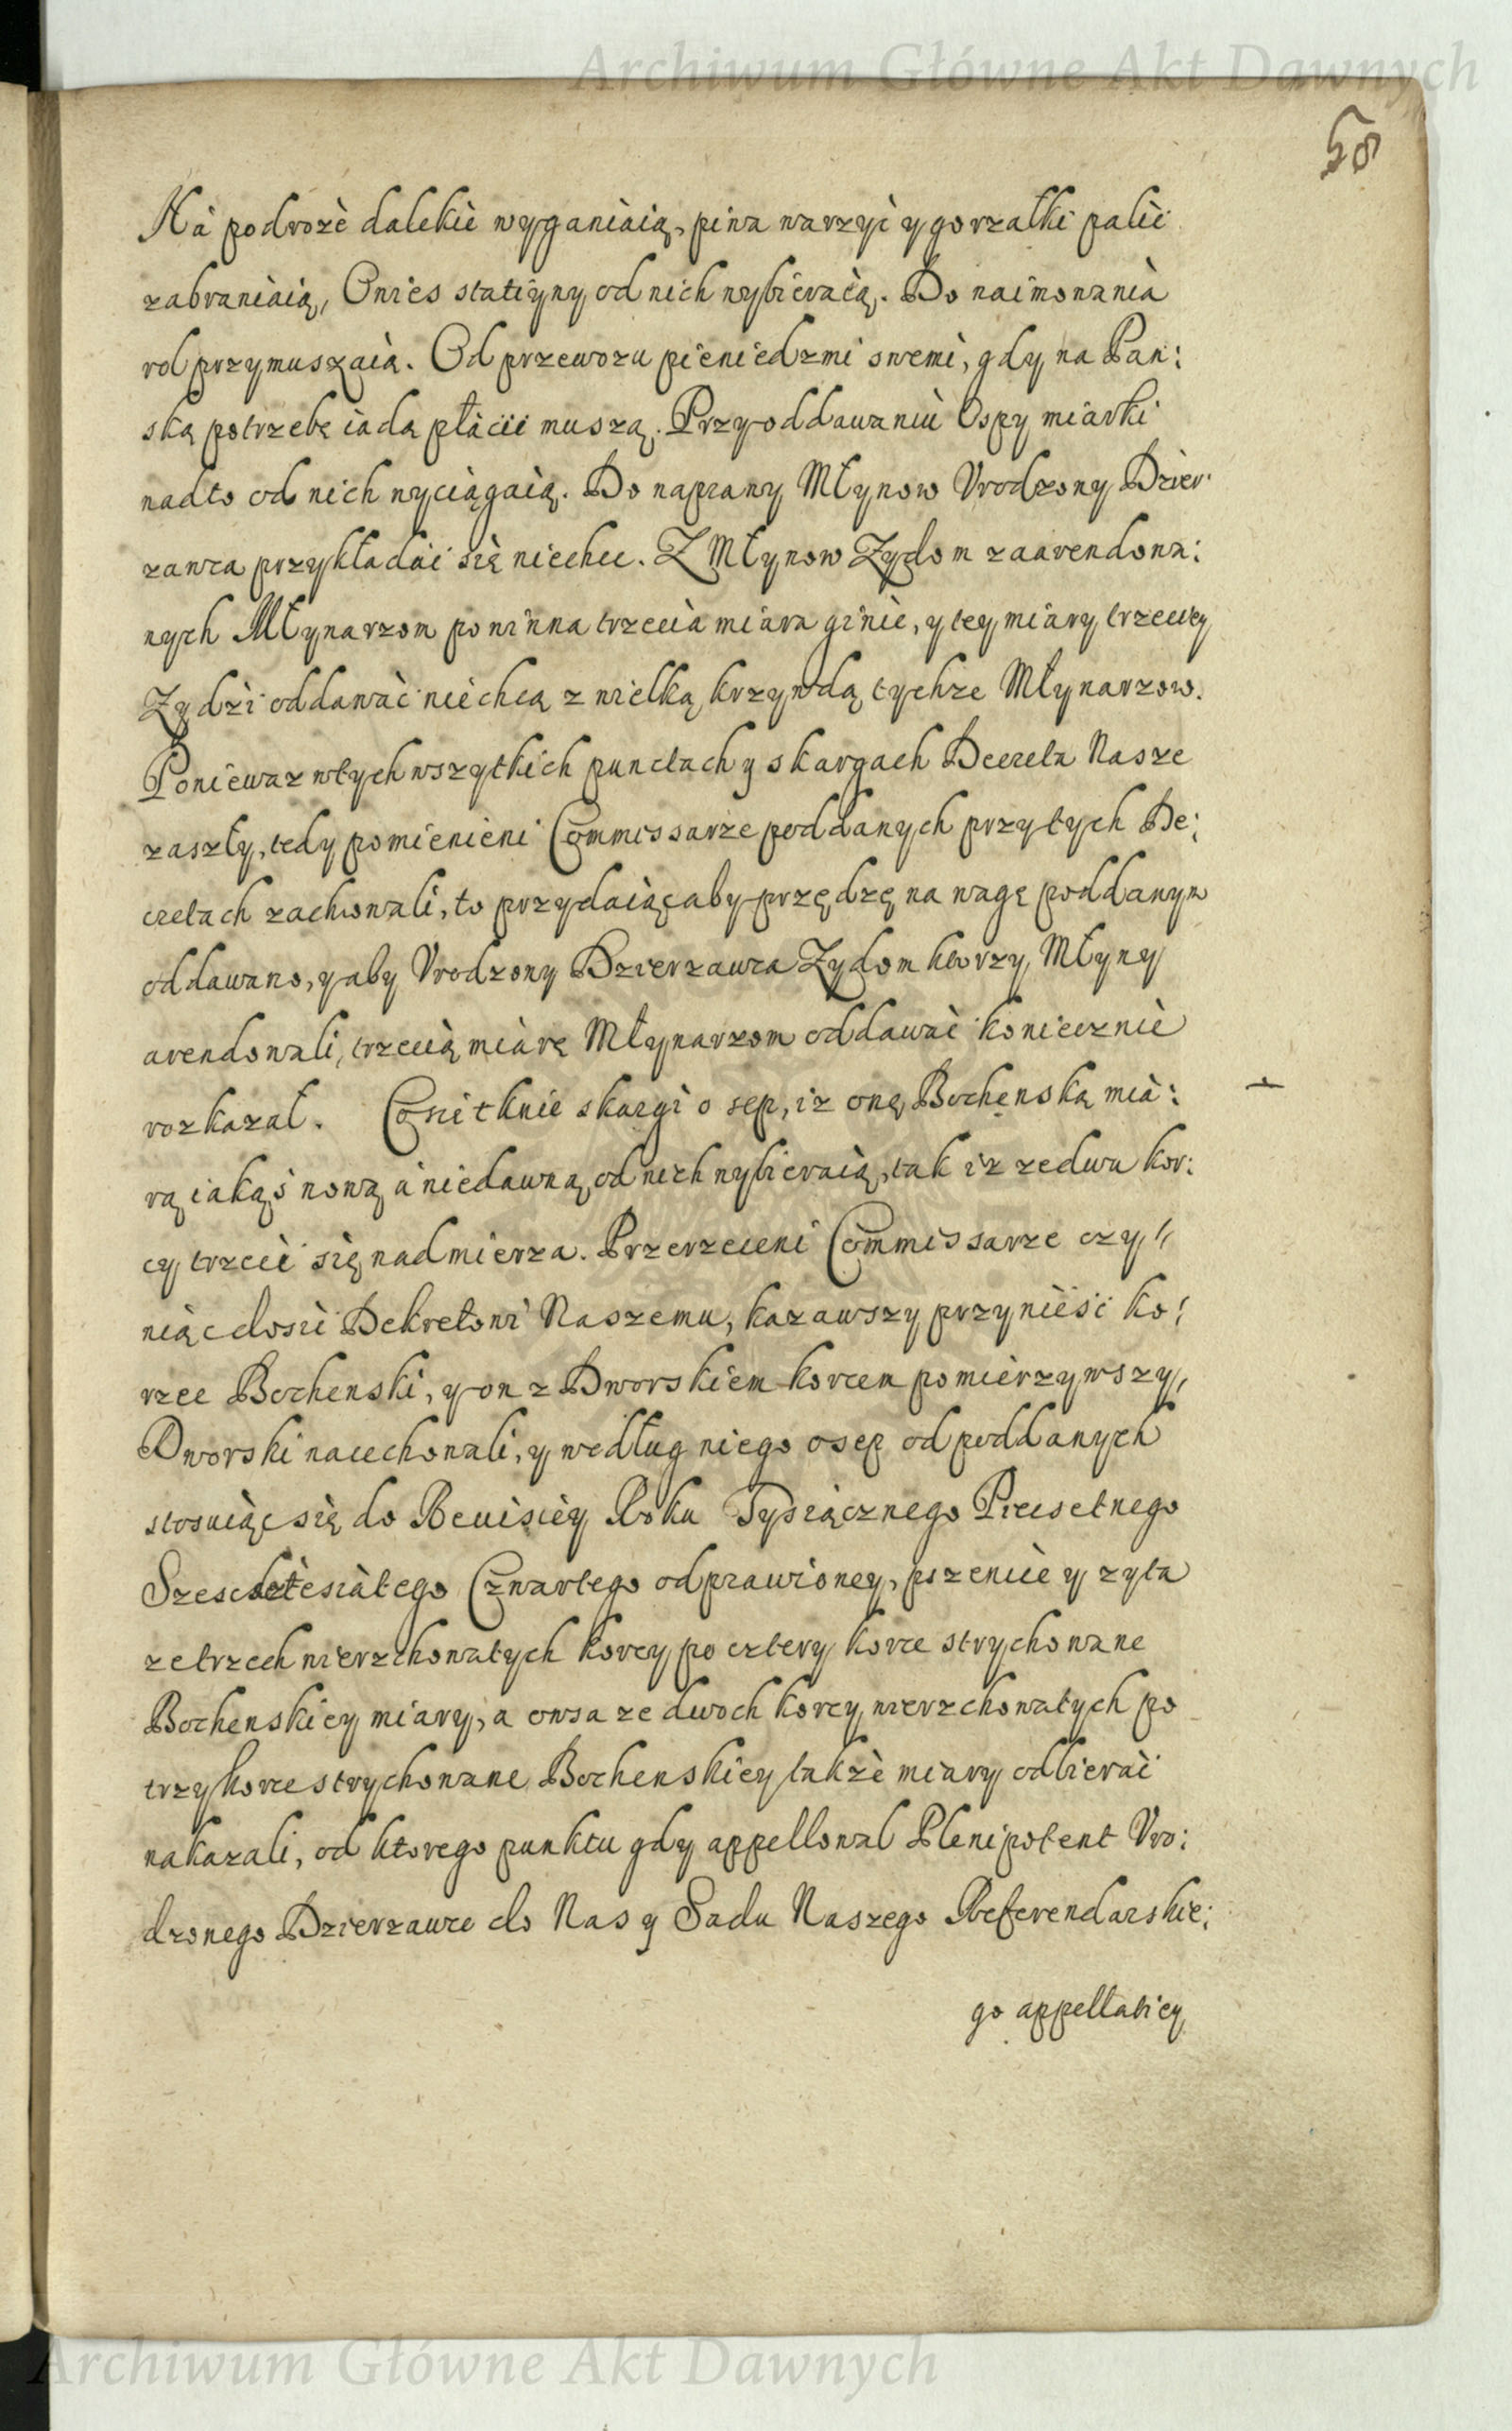 Archiwum Główne Akt Dawnych
58
Na podroże dalekie wyganiaią, piwa warzyć y gorzałki palić
zabraniaią, Owies statiyny od nich wybieraią. Do naimowania
rol przymuszaią. Od przewozu pieniedzmi swemi, gdy na Pan:
ską potrzebę iadą płacić muszą. Przy oddawaniu Ospy miarki
nadto od nich wyciągaią. Do naprawy Młynow Vrodzony Dzier
zawca przykładać się niechce. Z Młynow Zydom zaarendowa:
nych Młynarzom powinna trzecia miara ginie, y tey miary trzeciey
Zydzi oddawać niechcą z wielką krzywdą tychze Młynarzow.
Poniewaz wtych wszytkich punctach y skargach Decreta Nasze
zaszły, tedy pomienieni Commissarze poddanych przy tych De:
cretach zachowali, to przydaiąc aby przędzę na wagę poddanym
oddawano, y aby Vrodzony Dzierzawca Zydom ktorzy Młyny
arendowali, trzecią miarę Młynarzom oddawać koniecznie
rozkazał. Cosie tknie skargi o sep, iz oną Bochenską mia:
rą iakąś nową a niedawną od nich wybieraią, tak iz ze dwu kor:
cy trzeci się nadmierza. Przerzeceni Commissarze czy//
niąc dosić Dekretowi Naszemu, kazawszy przynieść ko:
rzec Bochenski, y on z Dworskiem korcem pomierzywszy,
Dworski nacechowali, y według niego osep od poddanych
stosuiąc się do Revisiey Roku Tysiącznego Piecsetnego
Szescdziesiątego Czwartego odprawioney, pszenice y zyta
ze trzech wierzchowatych korcy po cztery korce strychowane
Bochenskiey miary, a owsa ze dwoch korcy wierzchowatych po
trzy korce strychowane Bochenskiey także miary odbierać
nakazali, od ktorego punktu gdy appellował Plenipotent Vro:
dzonego Dzierzawce do Nas y Sadu Naszego Referendarskie:
go appellatiey
Archiwum Główne Akt Dawnych